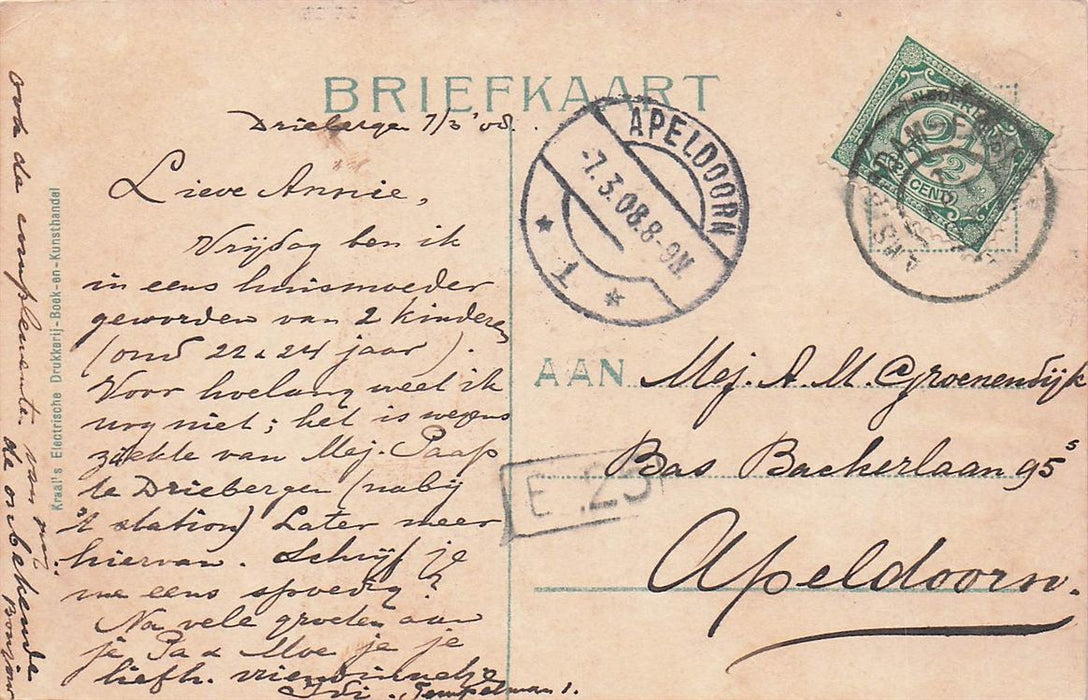 BRIEFKAART
Driebergen 7/3 '08.
Lieve Annie,
Vrijdag ben ik
in eens huismoeder
geworden van 2 kinderen
(oud 22 & 24 jaar).
Voor hoelang weet ik
nog niet; het is wegens
ziekte van Mej. Paap
te Driebergen (nabij
't station) Later meer
hiervan. Schrijf je
me eens spoedig?
Na vele groeten aan
je Pa & Moe je je
liefh. vriendinnetje
Tempelman 1.
ook de complimenten van mij
de onbekende
Kraal's Electrische Drukkerij-Boek-en-Kunsthandel
APELDOORN
-7.3.08.8-9N
* 1 *
NEDERLAND
2½
CENT
AMSTERDAM-EM
AAN Mej. A M Groenendijk
Bas Backerlaan 95 s
E. 23
Apeldoorn.